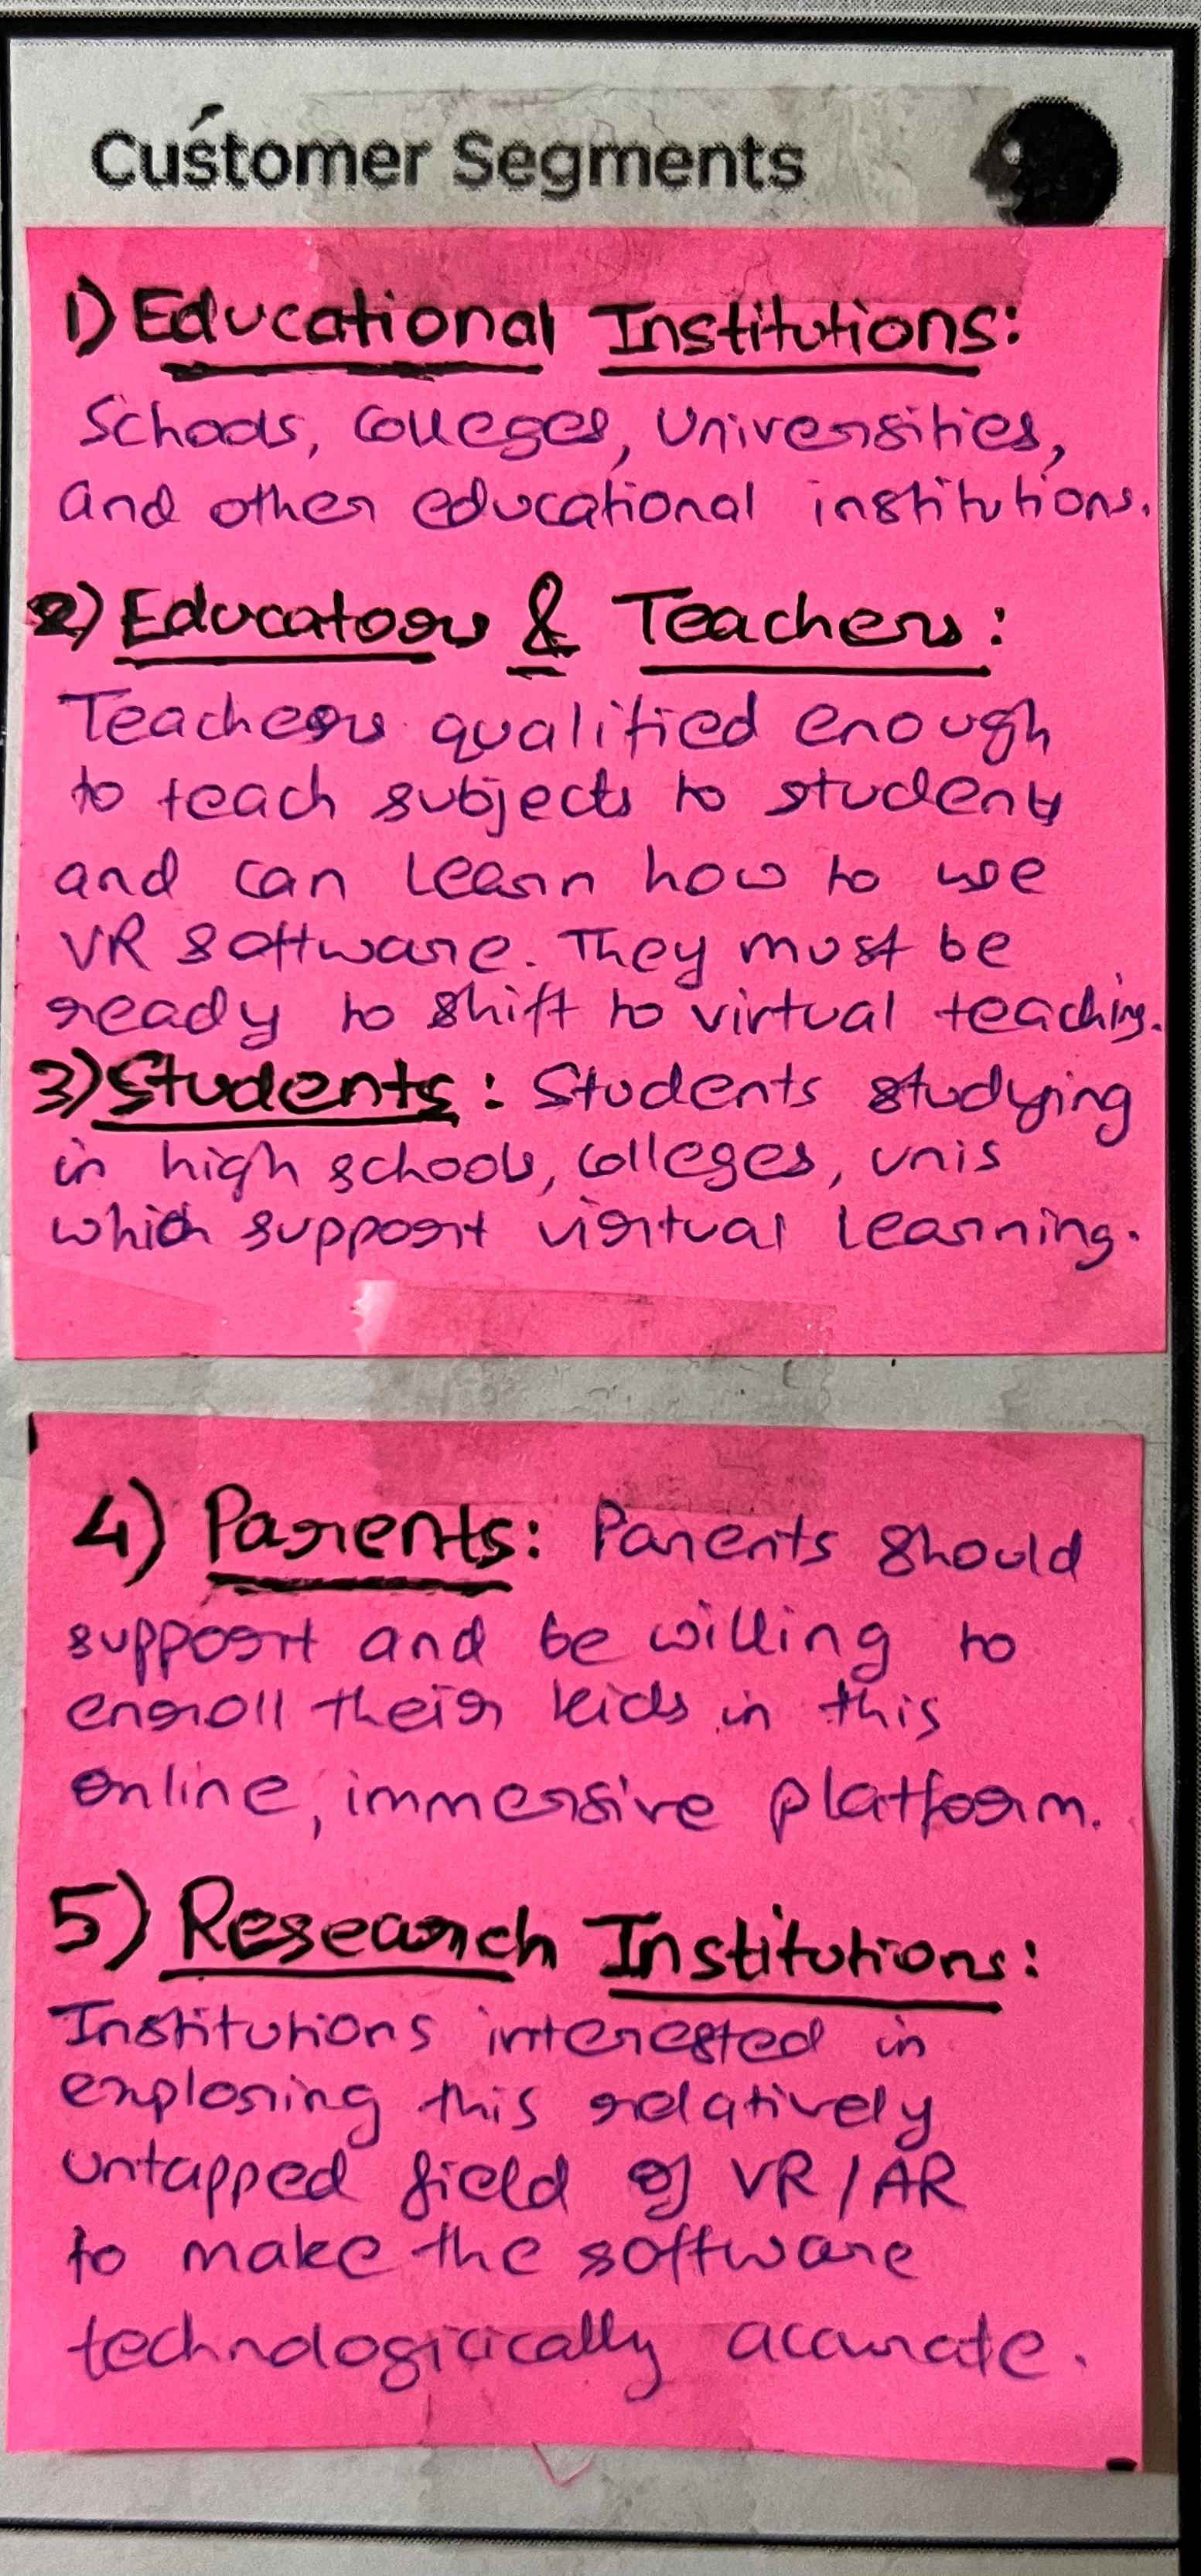 Customer Segments
1) Educational Institutions:
Schools, Colleges, Universities,
and other educational institutions.
2) Educators & Teachers:
Teachers qualified enough
to teach subjects to students
and can learn how to use
VR software. They must be
ready to shift to virtual teaching.
3) Students: Students studying
in high schools, colleges, unis
which support virtual learning.
4) Parents: Parents should
support and be willing to
enroll their kids in this
online, immersive platform.
5) Research Institutions:
Institutions interested in
exploring this relatively
untapped field of VR/AR
to make the software
technologicically accurate.